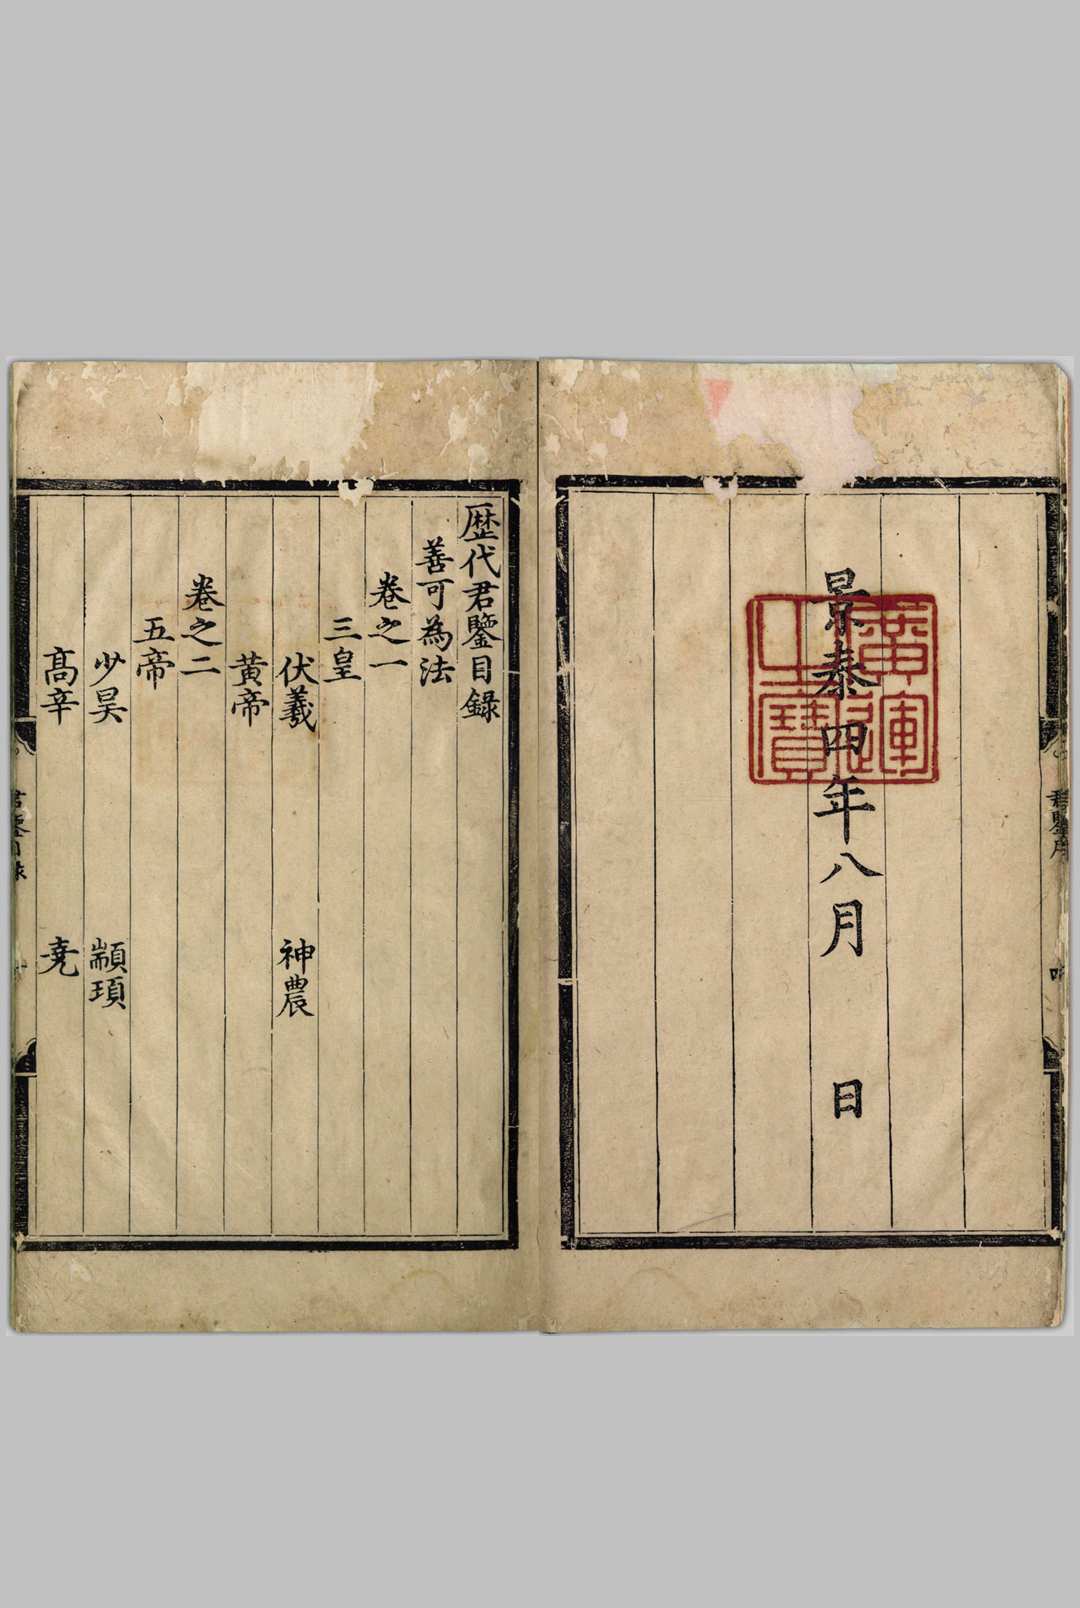 景泰四年八月　日
廣運之寶
君鑒序
歷代君鑒目録
善可為法
卷之一
三皇
伏羲　神農
黃帝
卷之二
五帝
少昊　顓頊
高辛　堯
君鑒目録